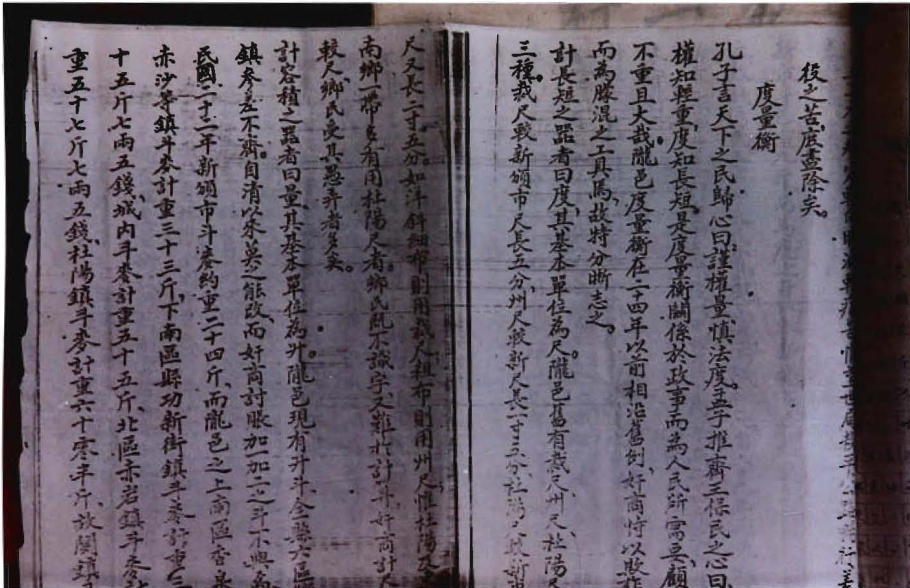 後之苦底盡除矣。
度量衡
孔子言天下之民歸心曰謹權量慎法度孟子推齊王保民之心曰
權知輕重度知長短是度量衡關係於政事而為人民所需要顧
不重且大哉隴邑度量衡在二十四年以前相沿舊例奸商恃以欺詐
而為朦混之工具焉故特分晰志之。
計長短之器者曰度其基本單位為尺。隴邑舊有裁尺州尺杜陽尺
三種。裁尺較新頒市尺長五分州尺較新尺長一寸五分杜陽尺較新
尺又長二寸五分。如洋斜細布則用裁尺粗布則用州尺惟杜陽
南鄉一帶多有用杜陽尺者。鄉民既不識字又難於計算奸商計尺
較人鄉民受其愚弄者多矣。
計容積之器者曰量其基本單位為升。隴邑現有升斗全縣六區
鎮參差不齊。自清以來莫之能改而奸商討賬加一加二之斗不與焉
民國二十一年新頒市斗麥約重二十四斤而隴邑之上南區香泉
赤沙等鎮斗麥計重三十三斤下南區縣功新街鎮斗麥計重
十五斤七兩五錢城內斗麥計重五十五斤北區赤岩鎮斗麥
重五十七斤七兩五錢杜陽鎮斗麥計重六十零半斤故關鎮